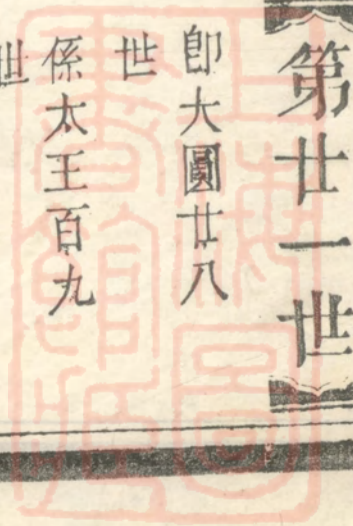 第廿一世
即大圓廿八
世
係太王百九
世